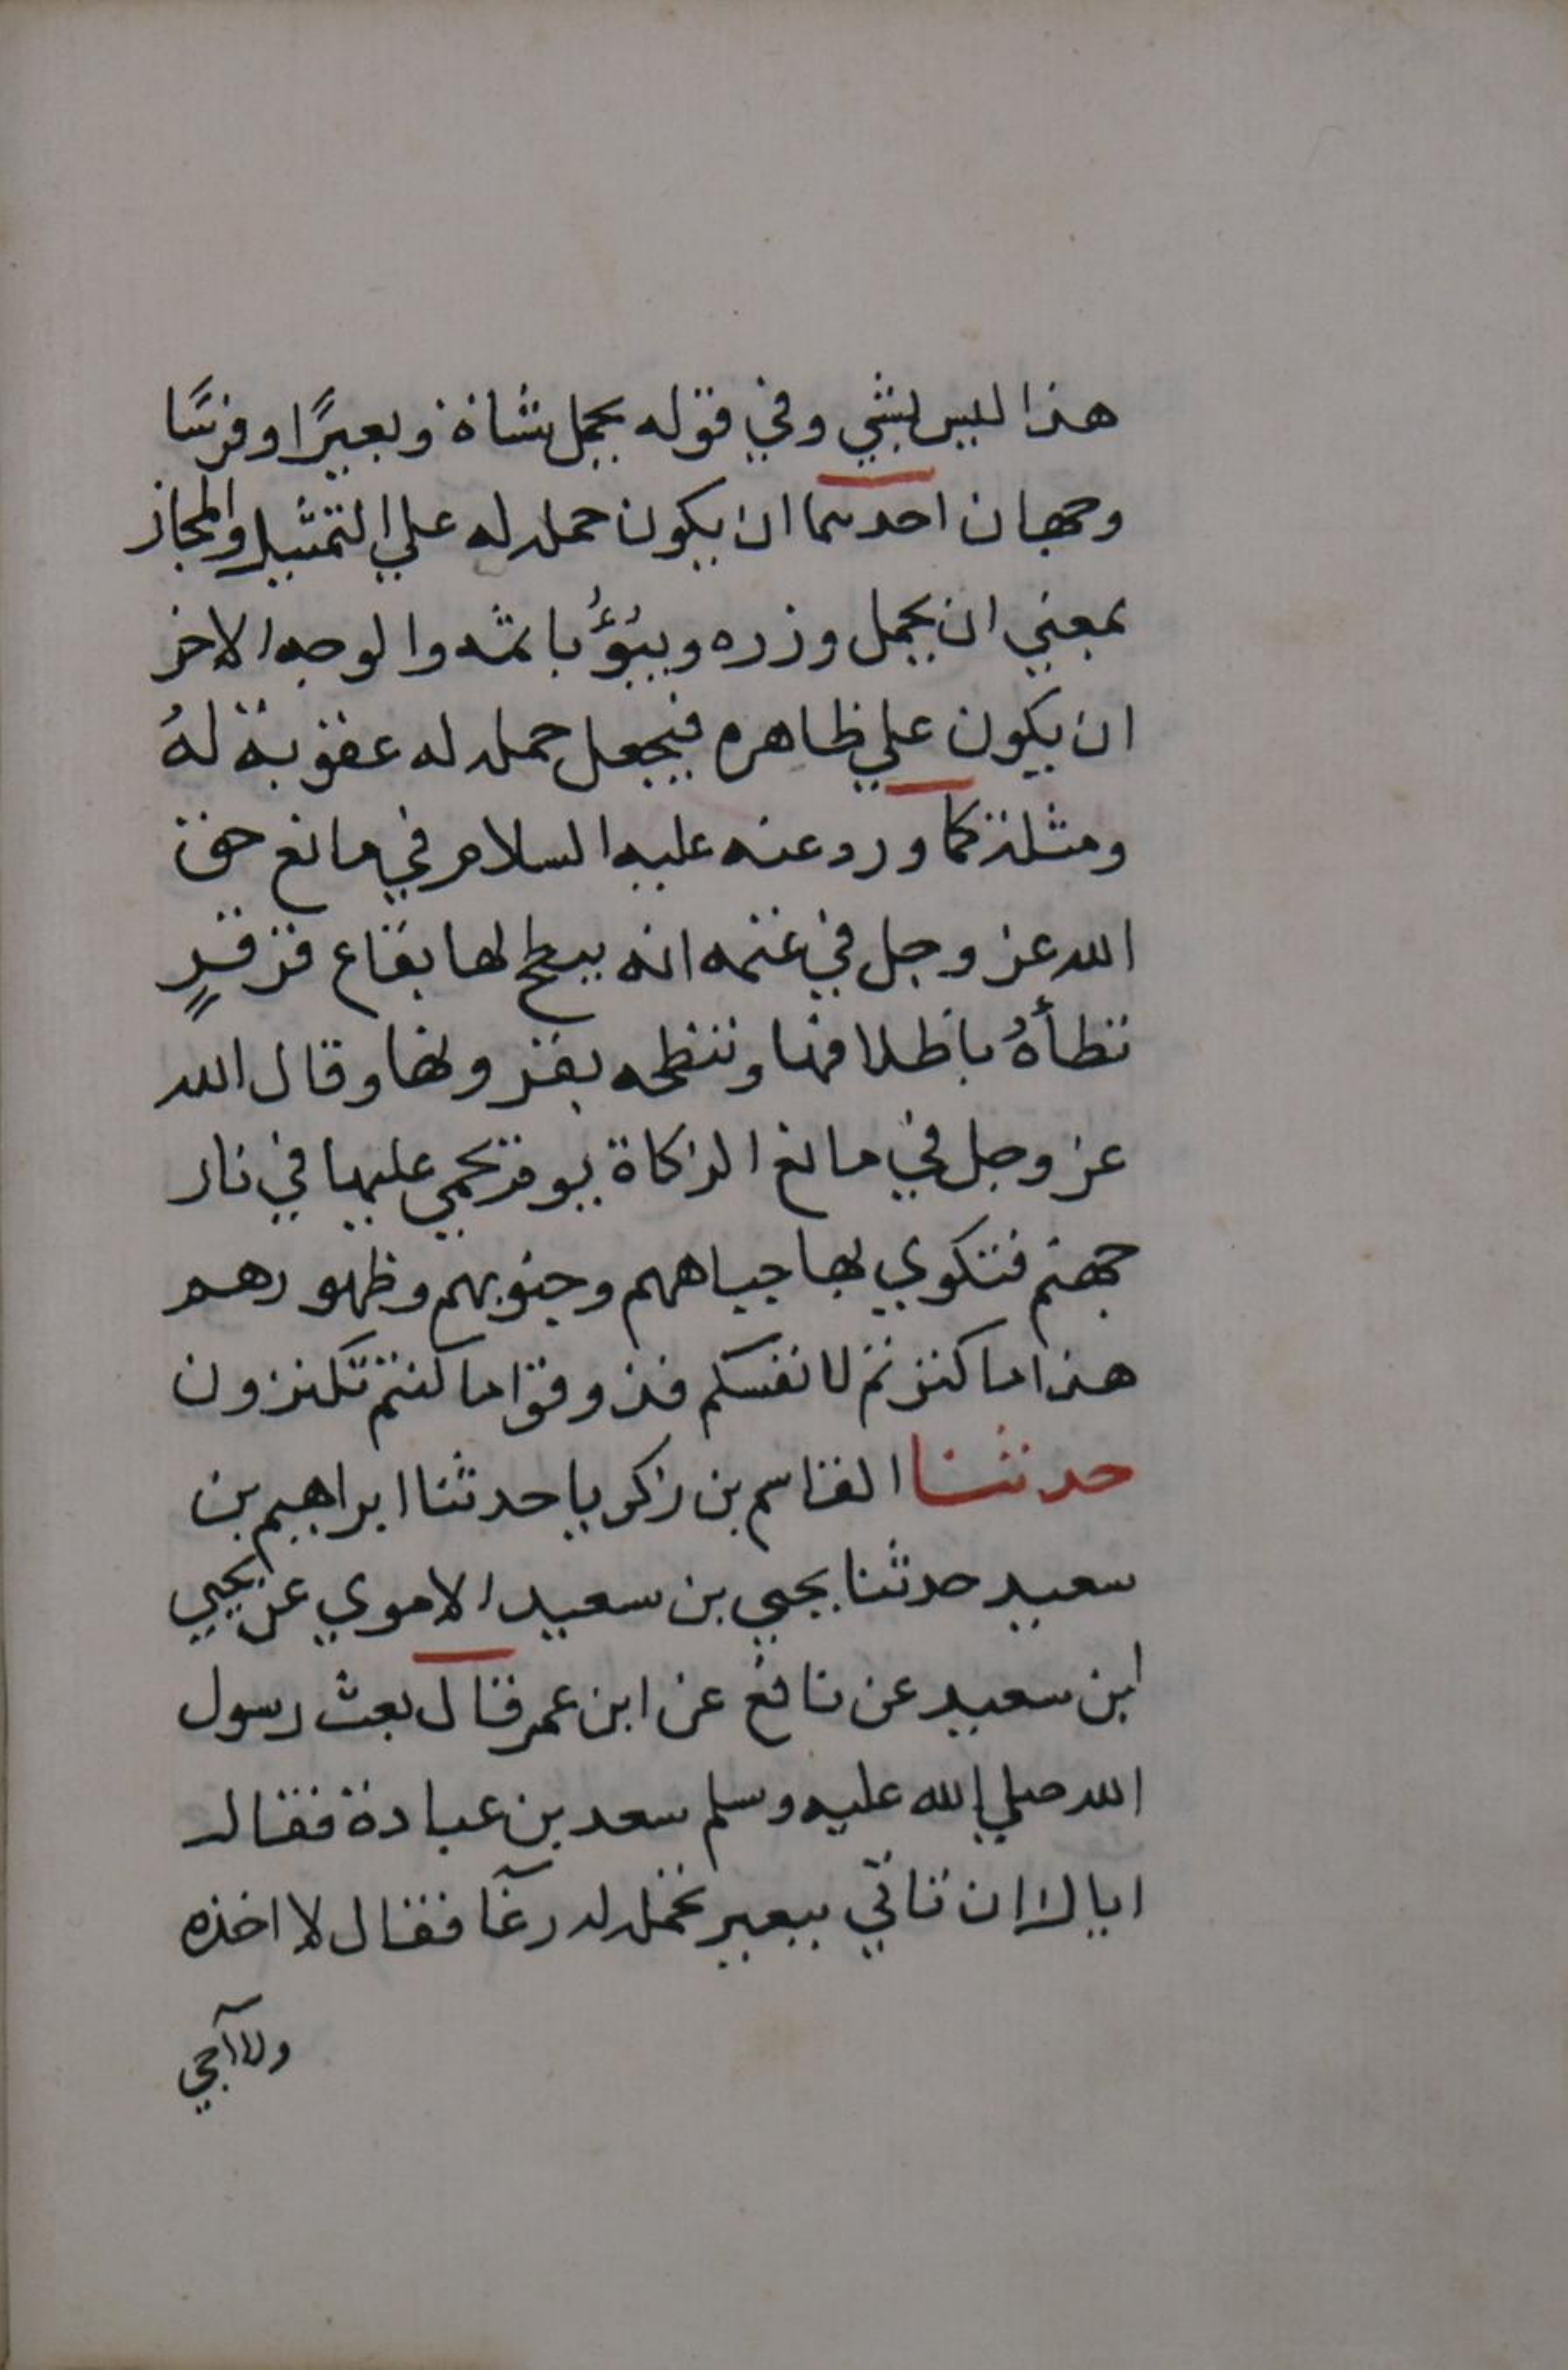 هذا ليس بشي وفي قوله يحمل شاة وبعيرًا وفرسًا
وجهان احدهما ان يكون حمله له علي التمثيل والمجاز
بمعني ان يحمل وزره ويبُؤُ باثمه والوجه الاخر
ان يكون علي ظاهره فيجعل حمله له عقوبة لهُ
ومثلة كما ورد عنه عليه السلام في مانع حق
الله عز وجل في غنمه انه يبطح لها بقاع قرقرٍ
تطأهُ باظلافها وتنطحه بقرونها وقال الله
عز وجل في مانع الزكاة يوم يحمي عليها في نار
جهنم فتكوي بها جباههم وجنوبهم وظهورهم
هذا ما كنزتم لانفسكم فذوقوا ما كنتم تكنزون
حدثنا القاسم بن زكريا حدثنا ابراهيم بن
سعيد حدثنا يحيي بن سعيد الاموي عن يحيي
ابن سعيد عن نافع عن ابن عمر قال بعث رسول
الله صلي الله عليه وسلم سعد بن عبادة فقال
اياك ان تاتي ببعير تحمله له رغآ فقال لا اخذه
ولا آجي